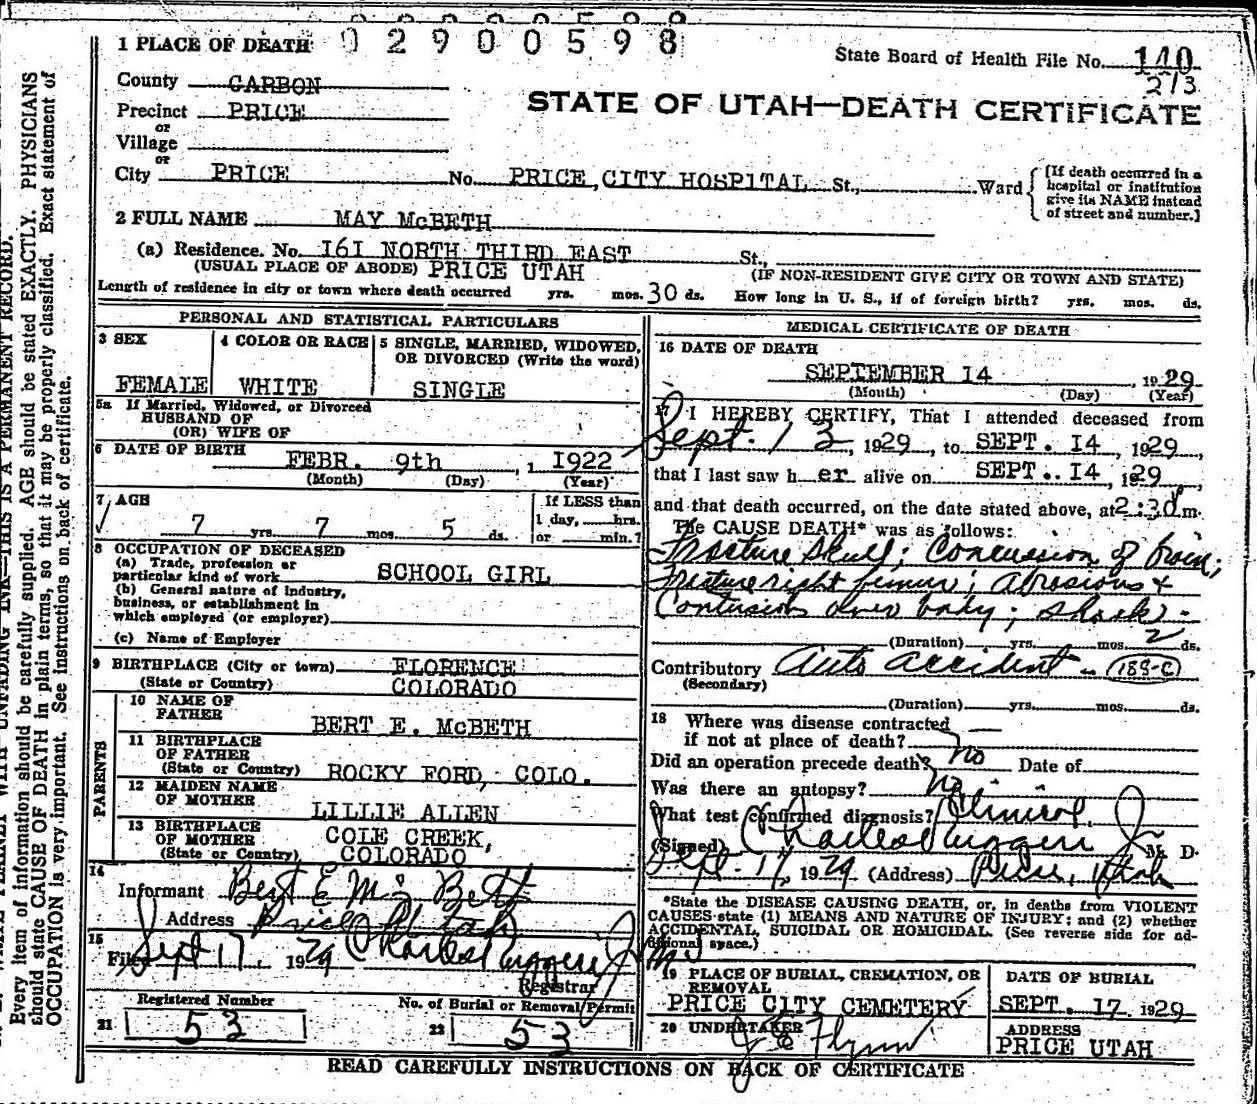 0 2 9 0 0 5 9 8
1 PLACE OF DEATH
State Board of Health File No. 140
273
County CARBON
STATE OF UTAH—DEATH CERTIFICATE
Precinct PRICE
or
Village
or
City PRICE No. PRICE, CITY HOSPITAL St., Ward
[If death occurred in a hospital or institution give its NAME instead of street and number.]
2 FULL NAME MAY McBETH
(a) Residence. No. 161 NORTH THIRD EAST St.,
(USUAL PLACE OF ABODE) PRICE UTAH (IF NON-RESIDENT GIVE CITY OR TOWN AND STATE)
Length of residence in city or town where death occurred yrs. mos. 30 ds. How long in U. S., if of foreign birth? yrs. mos. ds.
PERSONAL AND STATISTICAL PARTICULARS
3 SEX
4 COLOR OR RACE
5 SINGLE, MARRIED, WIDOWED, OR DIVORCED (Write the word)
FEMALE WHITE SINGLE
5a If Married, Widowed, or Divorced
HUSBAND OF
(OR) WIFE OF
6 DATE OF BIRTH FEBR. 9th, 1922
(Month) (Day) (Year)
7 AGE
If LESS than
7 yrs. 7 mos. 5 ds.
1 day, hrs.
or min.?
8 OCCUPATION OF DECEASED
(a) Trade, profession or
particular kind of work SCHOOL GIRL
(b) General nature of industry,
business, or establishment in
which employed (or employer)
(c) Name of Employer
9 BIRTHPLACE (City or town) FLORENCE
(State or Country) COLORADO
PARENTS
10 NAME OF
FATHER BERT E. McBETH
11 BIRTHPLACE
OF FATHER
(State or Country) ROCKY FORD, COLO.
12 MAIDEN NAME
OF MOTHER LILLIE ALLEN
13 BIRTHPLACE
OF MOTHER COLE CREEK,
(State or Country) COLORADO
14
Informant Bert E Mc Beth
Address Price Utah
15
Filed Sept 17 1929 Charles Ruggeri Jr MD
Registrar
Registered Number
No. of Burial or Removal Permit
21 53
22 53
MEDICAL CERTIFICATE OF DEATH
16 DATE OF DEATH
SEPTEMBER 14, 1929
(Month) (Day) (Year)
17 I HEREBY CERTIFY, That I attended deceased from
Sept. 13, 1929, to SEPT. 14, 1929,
that I last saw h er alive on SEPT.. 14, 1929,
and that death occurred, on the date stated above, at 2:30 P m.
The CAUSE DEATH* was as follows:
Fracture skull; Concussion of brain;
fracture right femur; abrasions &
Contusions over body; shock -
(Duration) yrs. mos. 2 ds.
Contributory Auto accident - 188-C
(Secondary)
(Duration) yrs. mos. ds.
18 Where was disease contracted
if not at place of death?
Did an operation precede death? no Date of
Was there an autopsy? no
What test confirmed diagnosis? Clinical
(Signed) Charles Ruggeri Jr M. D.
Sept. 17, 1929 (Address) Price, Utah
*State the DISEASE CAUSING DEATH, or, in deaths from VIOLENT
CAUSES state (1) MEANS AND NATURE OF INJURY; and (2) whether
ACCIDENTAL, SUICIDAL OR HOMICIDAL. (See reverse side for ad-
ditional space.)
19 PLACE OF BURIAL, CREMATION, OR REMOVAL
PRICE CITY CEMETERY
DATE OF BURIAL
SEPT. 17 1929
20 UNDERTAKER
J E Flynn
ADDRESS
PRICE UTAH
READ CAREFULLY INSTRUCTIONS ON BACK OF CERTIFICATE
THIS IS A PERMANENT RECORD.
Every item of information should be carefully supplied. AGE should be stated EXACTLY. PHYSICIANS
should state CAUSE OF DEATH in plain terms, so that it may be properly classified. Exact statement of
OCCUPATION is very important. See instructions on back of certificate.